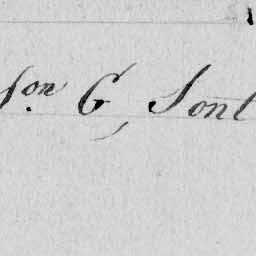 son G, Sont